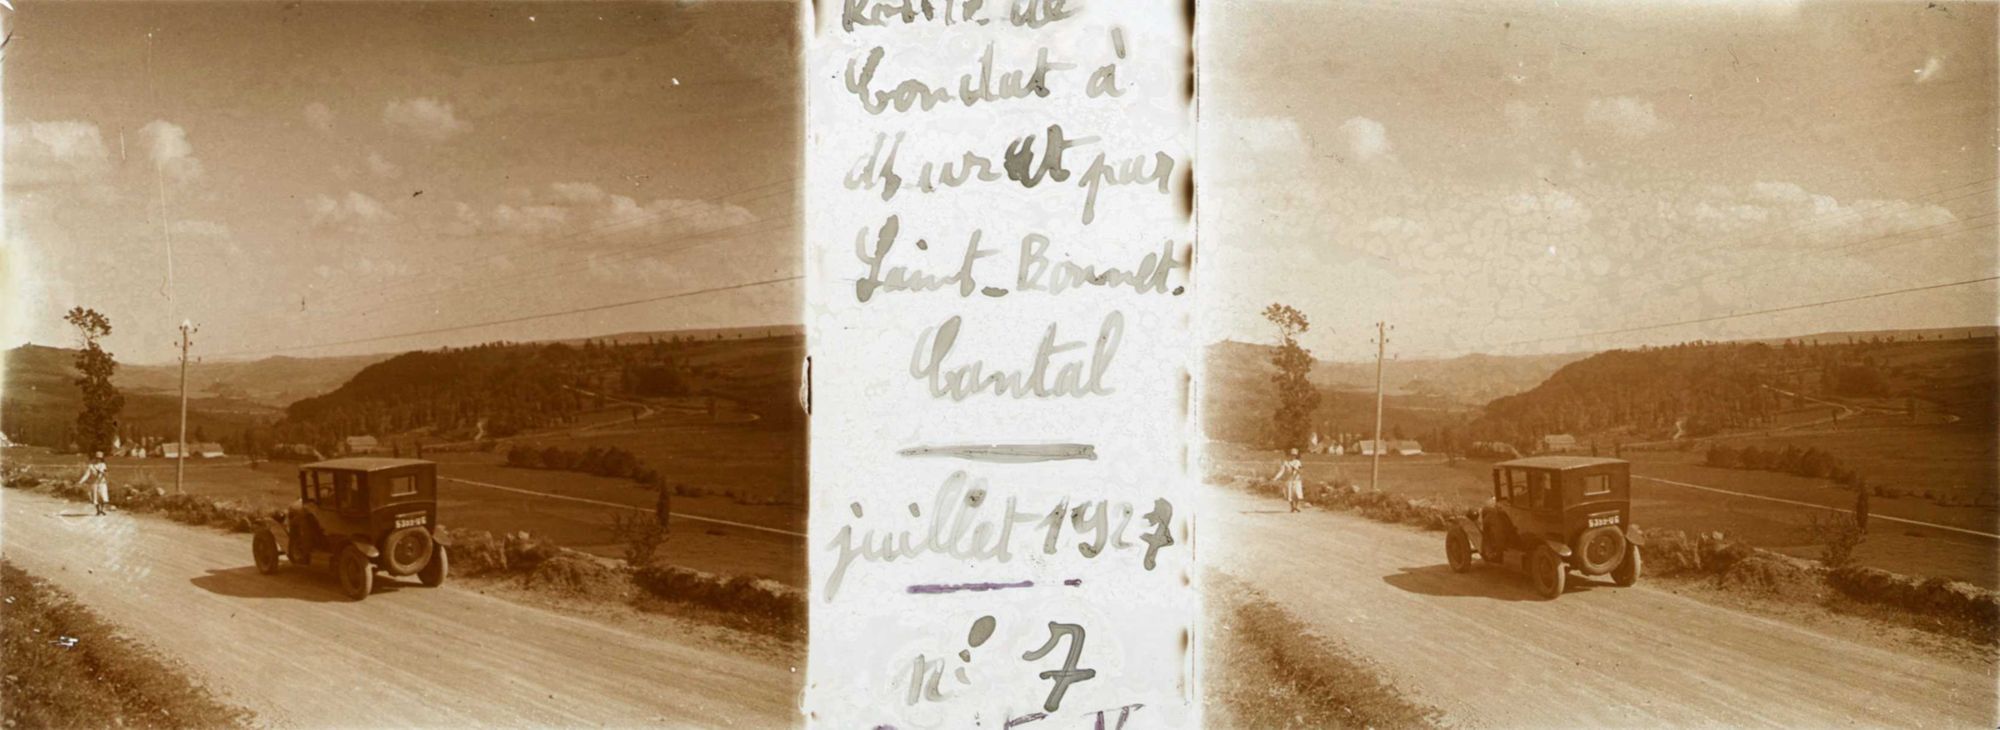 Route de
Condat à
Murat par
Saint-Bonnet.
Cantal
juillet 1927
n° 7